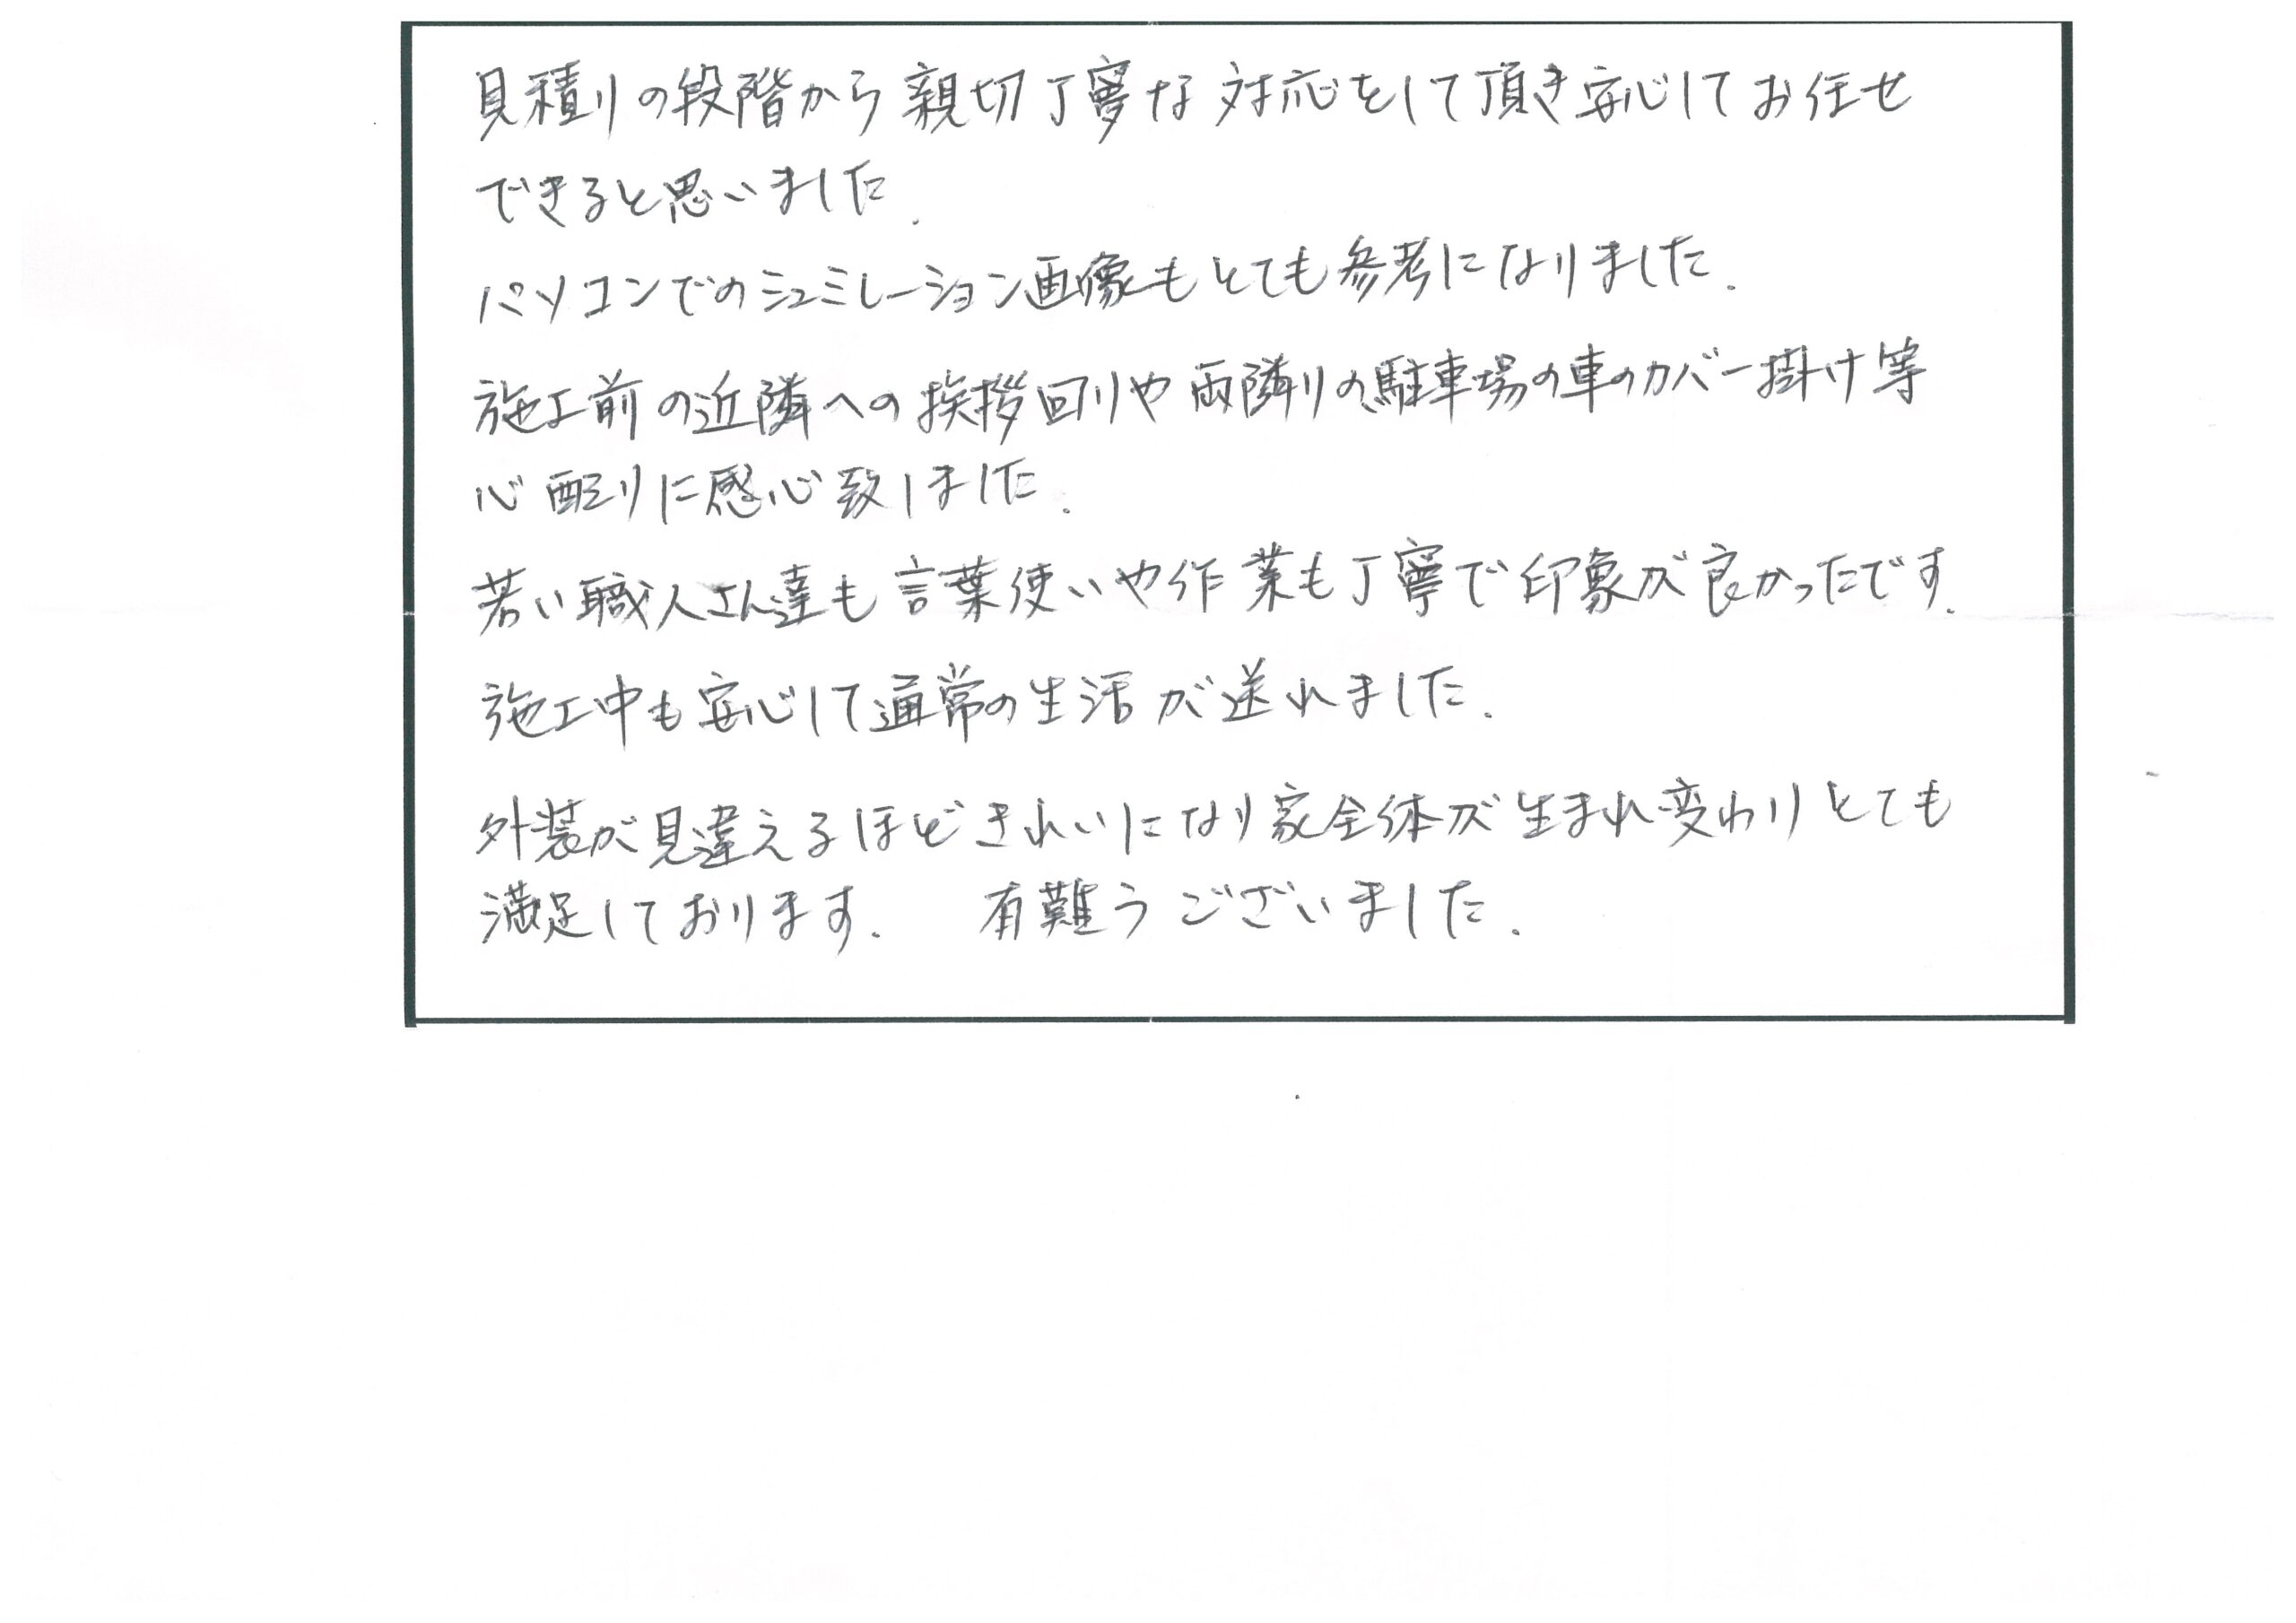 見積りの段階から親切丁寧な対応をして頂き安心してお任せ
できると思いました.
パソコンでのシュミレーション画像もとても参考になりました.
施工前の近隣への挨拶回りや両隣りの駐車場の車のカバー掛け等
心配りに感心致しました.
若い職人さん達も言葉使いや作業も丁寧で印象が良かったです.
施工中も安心して通常の生活が送れました.
外装が見違えるほどきれいになり家全体が生まれ変わりとても
満足しております. 有難うございました.